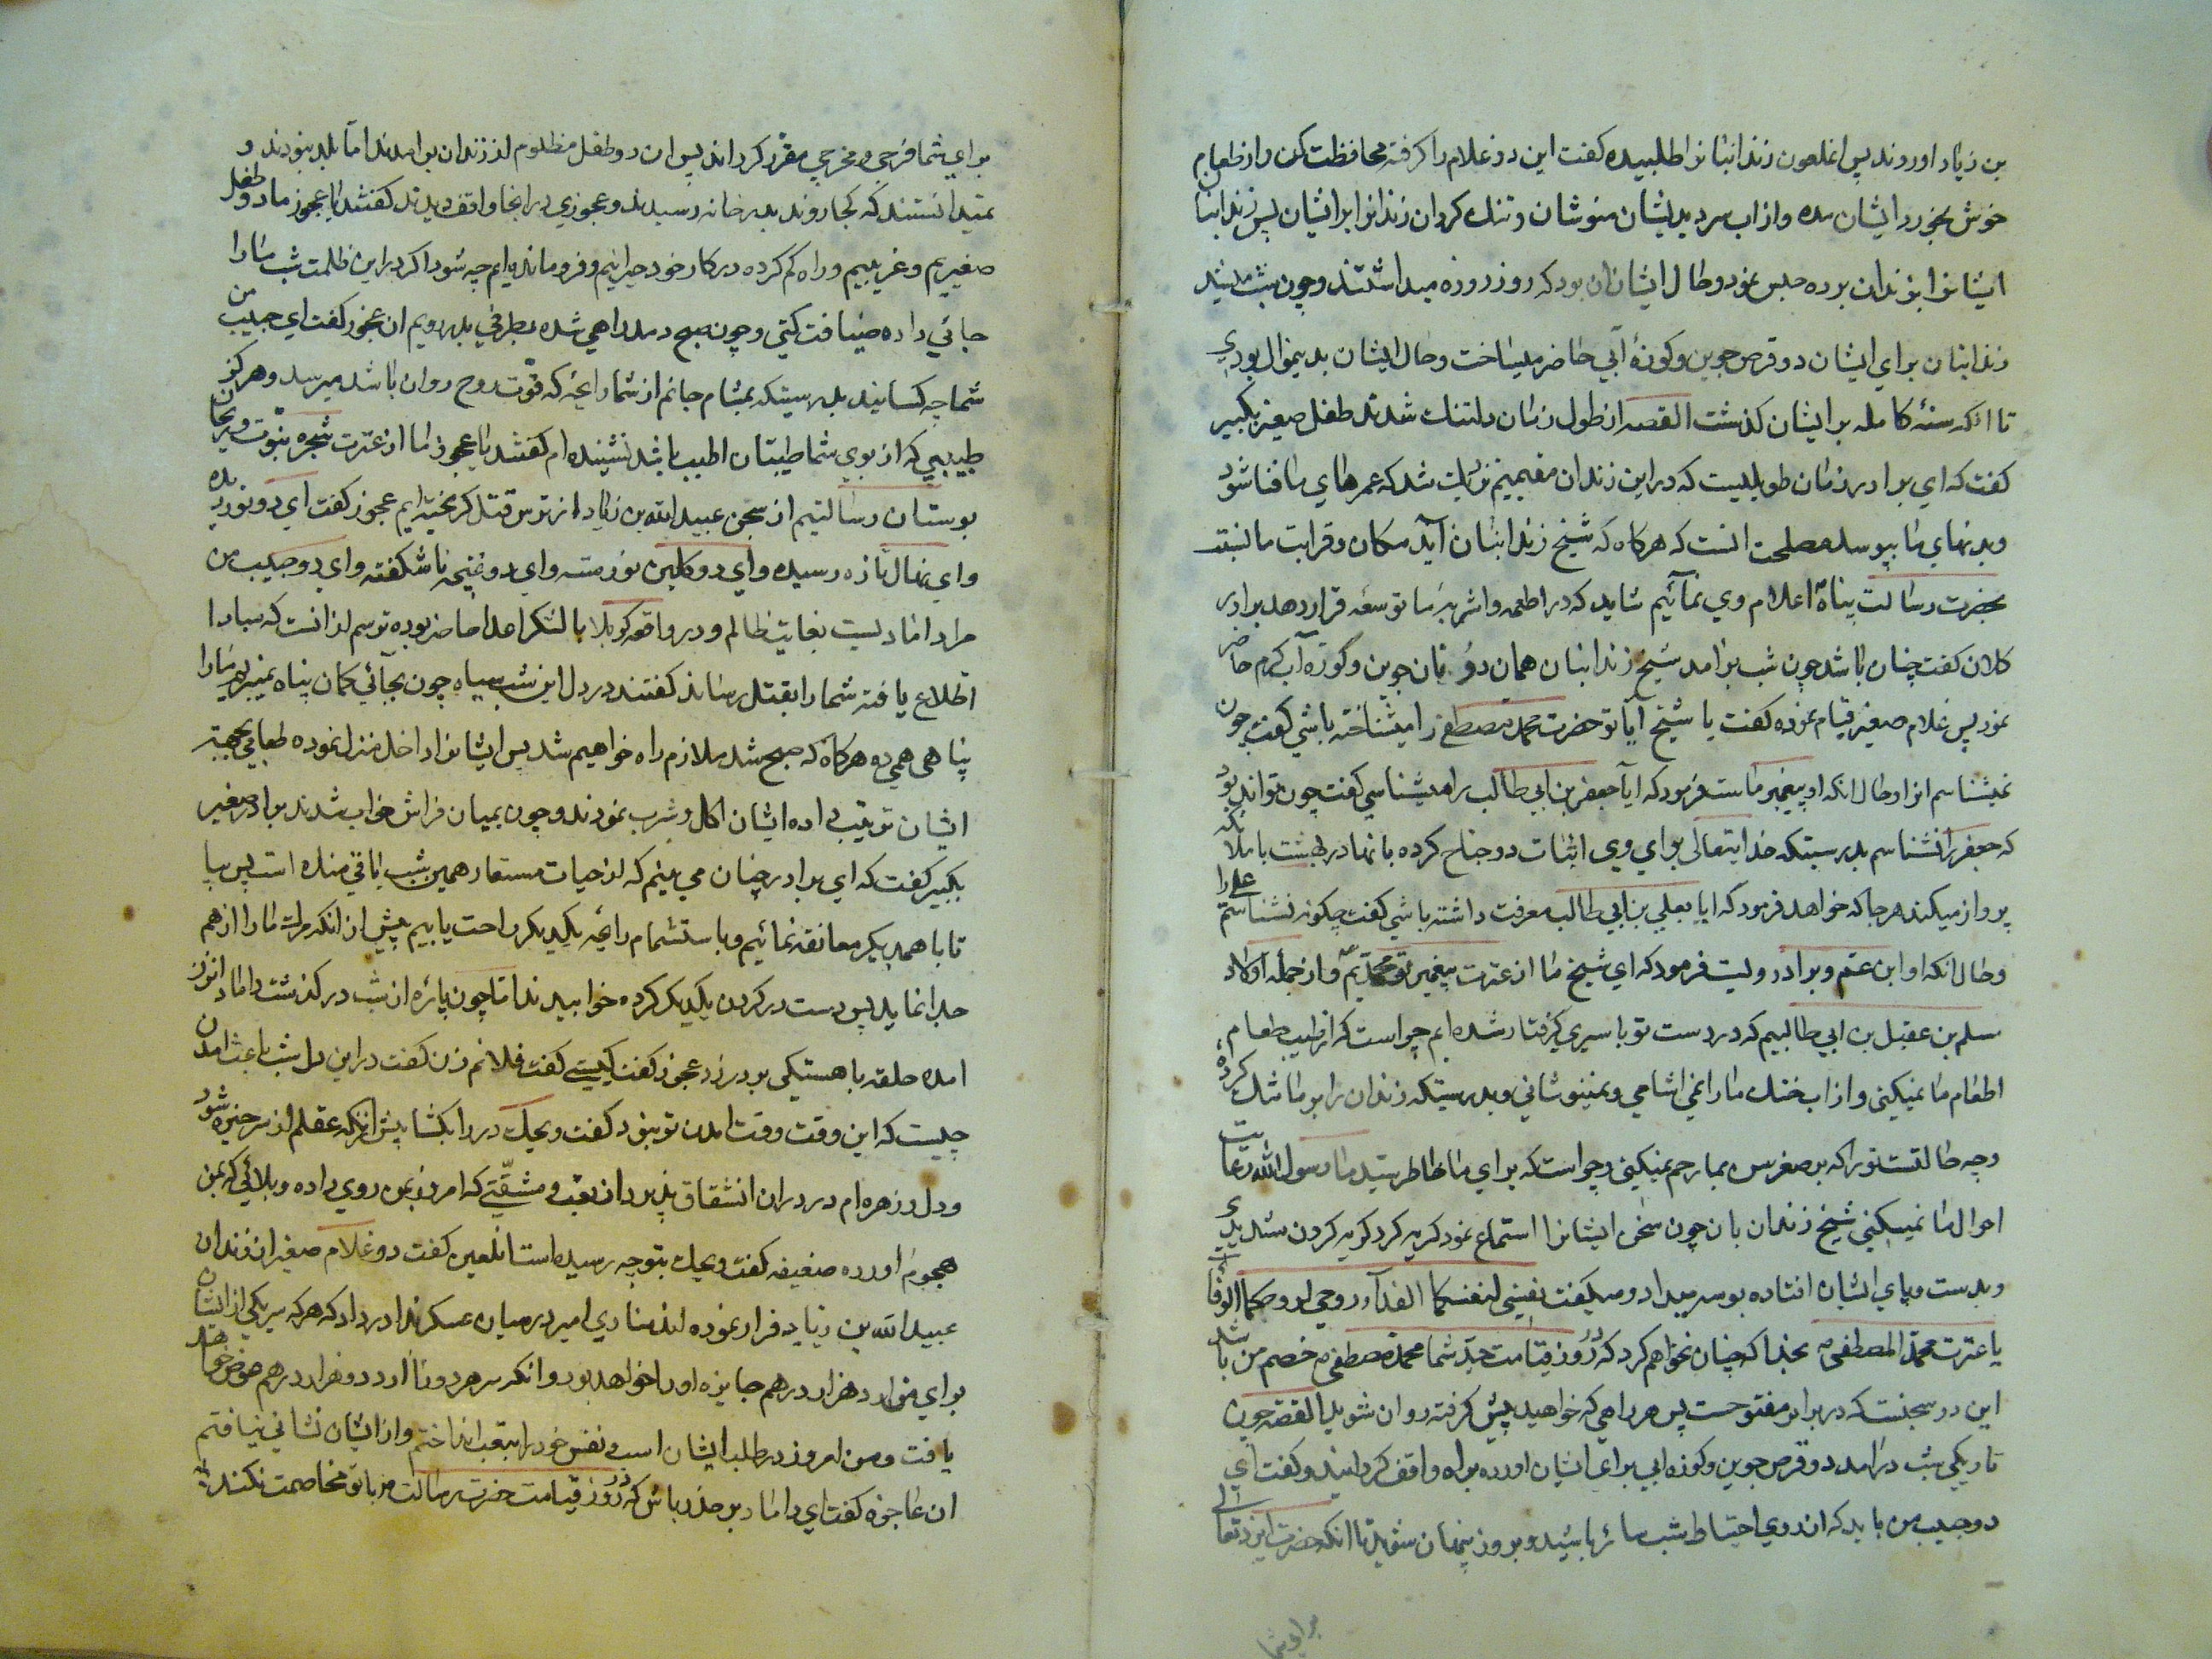 بن زیاد اوردند پس انملعون زندانبانرا طلبیده کفت این دو غلام را کرفته محافظت کن و از طعام
خوش بخورد ایشان مده و از اب سرد بدیشان منوشان و تنك کردان زندانرا بر ایشان پس زندانبان
ایشانرا بزندان برده حبس نمود و حال ایشان ان بود که روز روزه میداشتند و چون شب میشد
زندانبان برای ایشان دو قرص جوین و کوزهٔ آبی حاضر میساخت و حال ایشان بدینموال بودی
تا انکه سنهٔ کامله بر ایشان کذشت القصه از طول زمان دلتنك شدند طفل صغیر بکبیر
کفت که ای برادر زمان طویلیست که در این زندان مقیمیم نزدیك شد که عمرهای ما فنا شود
و بدنهای ما بپوسد مصلحت انست که هرکاه که شیخ زندانبان آید مکان و قرابت ما نسبت
بحضرت رسالت پناه اعلام وی نمائیم شاید که در اطعمه و اشربه ما توسعه قرار دهد برادر
کلان کفت چنان باشد چون شب برامد شیخ زندانبان همان دو نان جوین و کوزه آب کرم حاضر
نمود پس غلام صغیر قیام نموده کفت یا شیخ آیا تو حضرت محمد مصطفی را میشناخته باشی کفت چون
نمیشناسم انرا و حال انکه او پیغمبر ماست فرمود که ایا جعفر بن ابی طالب را میشناسی کفت چون تواند بود
که جعفر را نشناسم بدرستیکه خدایتعالی برای وی اثبات دو جناح کرده بانها در بهشت با ملائکه
پرواز میکند هرجا که خواهد فرمود که ایا بعلی بن ابی طالب معرفت داشته باشی کفت چکونه نشناسم علی را
و حال انکه او ابن عم و برادر ولیت فرمود که ای شیخ ما از عترت پیغمبر تو محمدیم و از جمله اولاد
مسلم بن عقیل بن ابی طالبیم که در دست تو باسیری کرفتار شده ایم چراست که از طیب طعام
اطعام ما نمیکنی و از اب خنك ما را نمی اشامی و نمینوشانی و بدرستیکه زندان را بر ما تنك کرده
و چه حالتست تو را که بر صغر سن بما رحم نمیکنی و چراست که برای ما خاطر سید ما رسول الله رعایت
احوال ما نمیکنی شیخ زندان بان چون سخن ایشانرا استماع نمود کریه کرد کریه کردن شدیدی
و بدست و پای ایشان افتاده بوسه میداد و میکفت نفسی لنفسکما الفدآء و روحی لروحکما الوقآء
یا عترت محمد المصطفی بخدا که چنان نخواهم کرد که در روز قیامت جد شما محمد مصطفی خصم من باشد
این در سجنست که در برابر مفتوحست پس هر راهی که خواهید پیش کرفته روان شوید القصه چون
تاریکی شب درامد دو قرص جوین و کوزه ابی برای ایشان اورده براه واقف کردانید و کفت ای
دو حبیب من باید که از روی احتیاط شب سائر باشید و بروز پنهان شوید تا انکه حضرت ایزد تعالی
برای شما
برای شما فرجی و مخرجی مقرر کرداند پس ان دو طفل مظلوم از زندان برامدند اما بلد نبودند و
نمیدانستند که کجا روند بدر خانه رسیدند و عجوزی در انجا واقف دیدند کفتند یا عجوز ما دو طفل
صغیریم و غریبیم و راه کم کرده در کار خود حیرانیم و فرو مانده ایم چه شود اکر در این ظلمت شب ما را
جائی داده ضیافت کنی و چون صبح دمد راهی شده بطرفی بدر رویم ان عجوز کفت ای حبیب من
شما چه کسانید بدرستیکه بمشام جانم از شما رائحه که قوت روح روان باشد میرسد و هرکز
طیبی که از بوی شما طیبتان اطیب باشد نشنیده ام کفتند یا عجوز ما از عترت شجره نبوت و ریحان
بوستان رسالتیم از سجن عبید الله بن زیاد از ترس قتل کریخته ایم عجوز کفت ای دو نور دیده
و ای نهال تازه رسیده و ای دو کلبن نورسته و ای دو غنچه ناشکفته و ای دو حبیب من
مرا دامادیست بغایت ظالم و در واقعه کربلا با لشکر اعدا حاضر بوده ترسم از انست که مبادا
اطلاع یافته شما را بقتل رساند کفتند در دل این شب سیاه چون بجائی کمان پناه نمیبریم ما را
پناهی همی ده هرکاه که صبح شد ملازم راه خواهیم شد پس ایشانرا داخل منزل نموده طعامی بجهة
ایشان ترتیب داده ایشان اکل و شرب نمودند و چون بمیان فراش خواب شدند برادر صغیر
بکبیر کفت که ای برادر چنان می بینم که از حیات مستعار همین شب باقی مانده است پس بیا
تا با همدیکر معانقه نمائیم و باستشمام رائحه یکدیکر راحت یابیم پیش از انکه مرك ما را از هم
جدا نماید پس دست در کردن یکدیکر کرده خوابیدند اما چون پاره از شب در کذشت داماد انزن
امده حلقه باهستکی بر در زد عجوز کفت کیستی کفت فلانم زن کفت در این دل شب باعث امدن
چیست که این وقت وقت امدن تو نبود کفت ویحك در را بکشا پیش از انکه عقلم از سر خیره شود
و دل و زهره ام در دران انشقاق پذیرد از تعب و مشقتی که امروز بمن روی داده و بلائی که بمن
هجوم اورده ضعیفه کفت ویحك بتو چه رسیده است انلعین کفت دو غلام صغیر از زندان
عبید الله بن زیاد فرار نموده اند منادی امیر در میان عسکر ندا در داد که هرکه سر یکی از ایشان
برای من اورد هزار درهم جایزه او را خواهد بود و انکه سر هر دو تا اورد دو هزار درهم عوض خواهد
یافت و من امروز در طلب ایشان اسب و نفس خود را بتعب انداختم و از ایشان نشانی نیافتم
ان عاجزه کفت ای داماد بر حذر باش که در روز قیامت حضرت رسالت مر با تو مخاصمت نکند